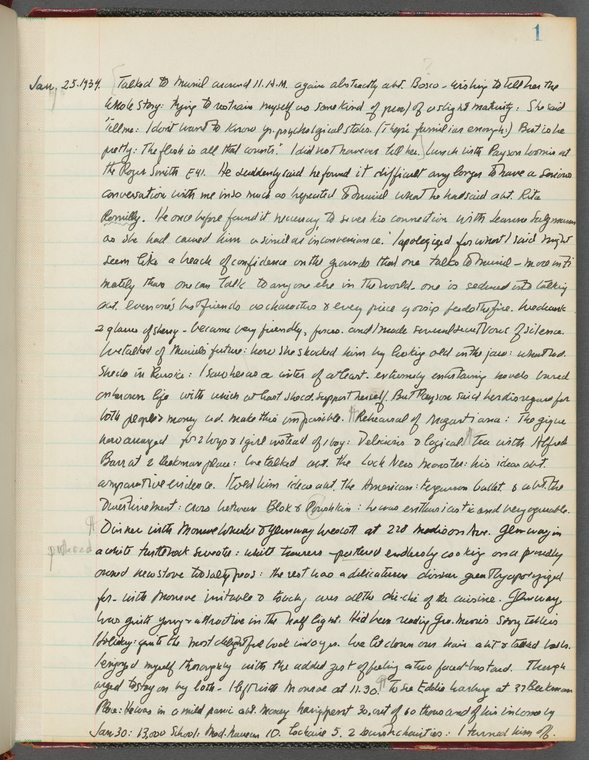 1
Jan, 25.1934. Talked to Muriel around 11. A.M. again abstractly abt. Bosco - wishing to tell her the
whole story: trying to restrain myself as some kind of proof of a slight maturity. She said
'Tell me: I don't want to know yr. psychological states. (I kept familiar enough) But is he
pretty: The flesh is all that counts'. I did not however tell her. Lunch with Payson Loomis at
the Roger Smith E41. He suddenly said he found it difficult any longer to have a serious
conversation with me in so much as I repeated to Muriel what he had said abt. Rita
Romilly. He once before found it necessary to sever his connection with Jeanne
as she had caused him a similar inconvenience. I apologized for what I said might
seem like a breach of confidence on the grounds that one talks to Muriel - more inti
mately than one can talk to anyone else in the world - one is seduced into talking
abt. everyone's best friends as characters & every piece of gossip feeds the fire. We drank
2 glasses of sherry - became very friendly, and I made several vows of silence.
We talked of Muriel's future: how she shocked him by looking old in the jaw: what wd.
she do in Russia: I saw her as a writer of at least extremely entertaining novels based
on her own life with which at least she cd. support herself. But Payson said her disregard for
both people & money wd. make this impossible. Rehearsal of Mozartiana: The gigue
now arranged for 2 boys & 1 girl instead of 1 boy: Delicious & logical. Tea with Alfred
Barr at 2 Beekman place: We talked abt. the Loch Ness Monster: his ideas abt.
comparative evidence. I told him ideas abt. the American: Ferguson ballet & abt the
Divertissement: cross between Blok & Pushkin: he was enthusiastic and very agreeable.
Dinner with Monroe Wheeler & Glenway Wescott at 228 Madison Ave. Glenway in
a white turtleneck sweater: white trousers - postured endlessly cooking on a proudly
owned new stove to salty peas: the rest was a delicatessen dinner greatly apologized
for - with Monroe irritable & touchy over all the of the cuisine. Glenway
was quite young & attractive in the half light. Had been reading Geo. Moore's Story Tellers
Holiday: quite the most delightful book in 10 yrs. We let down our hair a bit & talked books.
I enjoyed myself thoroughly with the added zest of feeling a two faced bastard. Though
urged to stay on by both - I left with Monroe at 11.30. To see Eddie Warburg at 37 Beekman
Place: He was in a mild panic abt. money having spent 30, out of 60 thousand of his income by
Jan 30: 13,000 School: Mod. Museum 10. Lachaise 5. 2 Jewish charities: I turned him off.